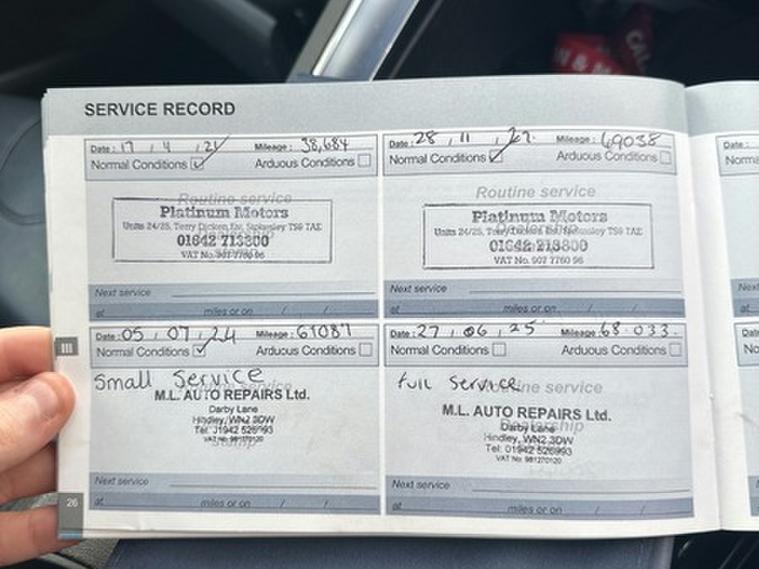 SERVICE RECORD
Date: 17 / 4 / 21 Mileage: 38,684
Normal Conditions Arduous Conditions
Routine service
Platinum Motors
Units 24/25, Terry Dicken Est, Stokesley TS9 7AE
01642 713800
VAT No. 907 7760 96
Next service
at miles or on / /
Date: 28 / 11 / Mileage: 69038
Normal Conditions Arduous Conditions
Routine service
Platinum Motors
Units 24/25, Terry Dicken Est, Stokesley TS9 7AE
01642 713800
VAT No. 907 7760 96
Next service
at miles or on / /
Date: 05 / 07 / 24 Mileage: 67087
Normal Conditions Arduous Conditions
Small Service
M.L. AUTO REPAIRS Ltd.
Darby Lane
Hindley, WN2 3DW
Tel: 01942 526993
VAT No: 981270120
stamp
Next service
at miles or on / /
Date: 27 / 06 / 25 Mileage: 68.033.
Normal Conditions Arduous Conditions
full Service
Routine service
M.L. AUTO REPAIRS Ltd.
Dealership
Darby Lane
Hindley, WN2 3DW
Tel: 01942 526993
VAT No: 981270120
stamp
Next service
at miles or on / /
26